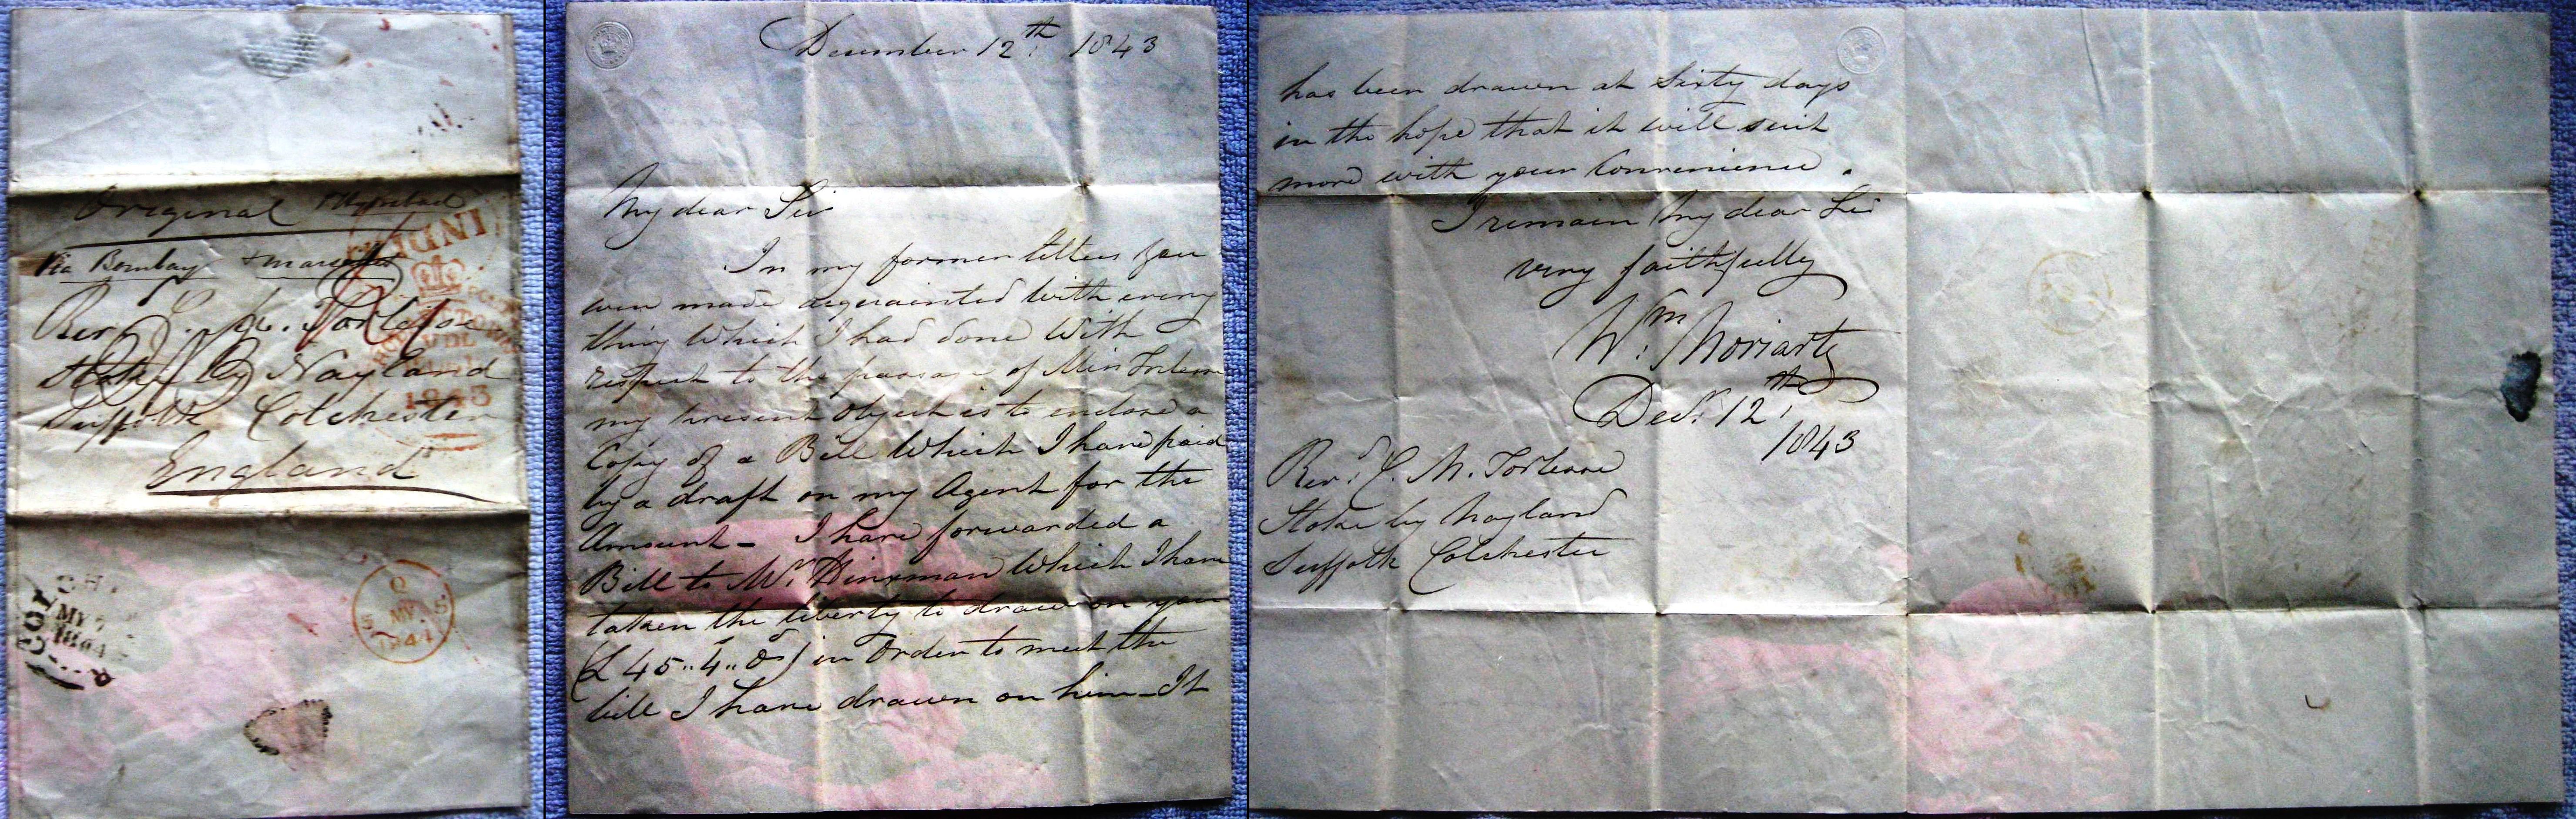 Original
Via Bombay & Marseilles
INDIA
Rev C. M. Torlesse
Stoke by Nayland
Suffolk Colchester
England
VDL
1843
COLCH
MY 7
1844
Q
5 MY 5
1844
December 12th 1843
My dear Sir
In my former letters you
were made acquainted with every
thing which I had done with
respect to the passage of Miss Torlesse
my present object is to enclose a
Copy of a Bill which I have paid
by a draft on my Agent for the
Amount - I have forwarded a
Bill to Mr Hinxman which I have
taken the liberty to draw on you
(£45..4..0) in order to meet the
bill I have drawn on him - It
has been drawn at Sixty days
in the hope that it will suit
more with your Convenience.
I remain My dear Sir
very faithfully
Wm Moriarty
Decr. 12th
1843
Revd. C. M. Torlesse
Stoke by Nayland
Suffolk Colchester